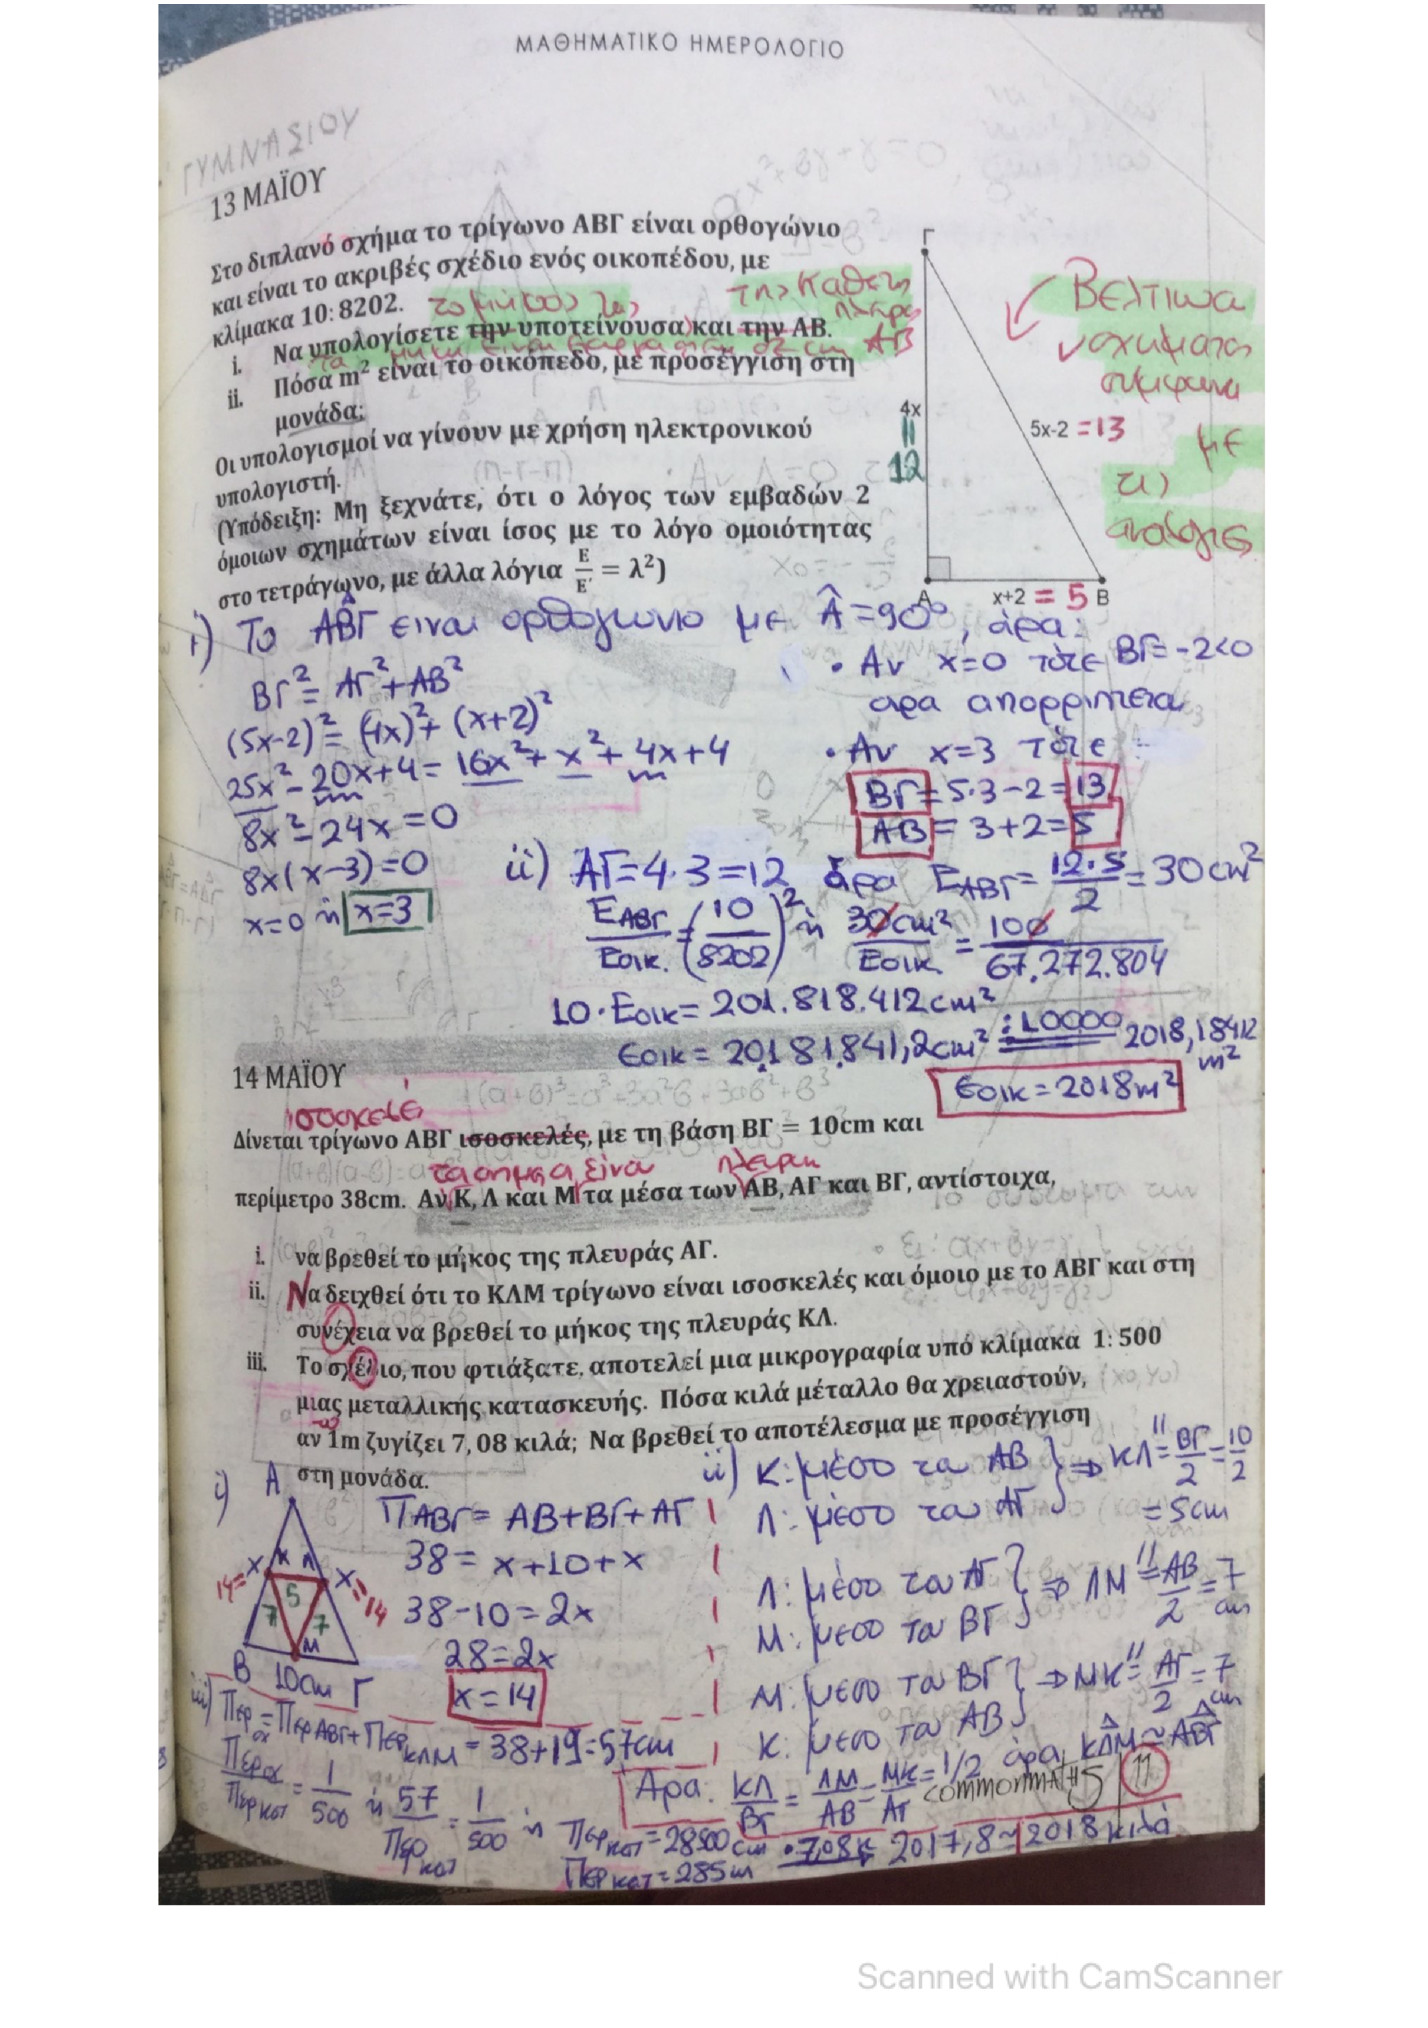 ΜΑΘΗΜΑΤΙΚΟ ΗΜΕΡΟΛΟΓΙΟ
ΓΥΜΝΑΣΙΟΥ
13 ΜΑΪΟΥ
Στο διπλανό σχήμα το τρίγωνο ΑΒΓ είναι ορθογώνιο
και είναι το ακριβές σχέδιο ενός οικοπέδου, με
κλίμακα 10: 8202.
το μήκος της
της κάθετης πλευράς ΑΒ
i. Να υπολογίσετε την υποτείνουσα και την ΑΒ.
ii. Πόσα m² είναι το οικόπεδο, με προσέγγιση στη
μονάδα;
Οι υπολογισμοί να γίνουν με χρήση ηλεκτρονικού
υπολογιστή.
(Υπόδειξη: Μη ξεχνάτε, ότι ο λόγος των εμβαδών 2
όμοιων σχημάτων είναι ίσος με το λόγο ομοιότητας
στο τετράγωνο, με άλλα λόγια Ε/Ε' = λ²)
Γ
4x
=
12
5x-2 = 13
Α x+2 = 5 Β
Βελτίωσα
σχήματα
σύμφωνα
με
τις
αναλογίες
i) Το ΑΒΓ είναι ορθογώνιο με Â=90°, άρα:
ΒΓ²= ΑΓ²+ΑΒ²
(5x-2)²= (4x)²+ (x+2)²
25x²-20x+4= 16x²+x²+4x+4
8x²-24x=0
8x(x-3)=0
x=0 ή x=3
• Αν x=0 τότε ΒΓ=-2<0
άρα απορρίπτεται
• Αν x=3 τότε:
ΒΓ= 5·3-2=13
ΑΒ= 3+2=5
ii) ΑΓ=4·3=12 άρα ΕΑΒΓ= 12·5/2=30cm²
ΕΑΒΓ/Εοικ. = (10/8202)² ή 30cm²/Εοικ = 100/67.272.804
10·Εοικ= 201.818.412cm²
Εοικ= 20.181.841,2cm² :10000 2018,18412 m²
Εοικ=2018m²
14 ΜΑΪΟΥ
ισοσκελές
Δίνεται τρίγωνο ΑΒΓ ισοσκελές, με τη βάση ΒΓ = 10cm και
τα σημεία είναι πλευρών
περίμετρο 38cm. Αν Κ, Λ και Μ τα μέσα των ΑΒ, ΑΓ και ΒΓ, αντίστοιχα,
i. να βρεθεί το μήκος της πλευράς ΑΓ.
ii. Να δειχθεί ότι το ΚΛΜ τρίγωνο είναι ισοσκελές και όμοιο με το ΑΒΓ και στη
συνέχεια να βρεθεί το μήκος της πλευράς ΚΛ.
iii. Το σχέδιο, που φτιάξατε, αποτελεί μια μικρογραφία υπό κλίμακα 1: 500
μιας μεταλλικής κατασκευής. Πόσα κιλά μέταλλο θα χρειαστούν,
αν 1m ζυγίζει 7, 08 κιλά; Να βρεθεί το αποτέλεσμα με προσέγγιση
στη μονάδα.
i) Α
Κ Λ
14=x x=14
5
7 7
Μ
Β 10cm Γ
ΠΑΒΓ= ΑΒ+ΒΓ+ΑΓ
38= x+10+x
38-10=2x
28=2x
x=14
ii) Κ: μέσο του ΑΒ
Λ: μέσο του ΑΓ } ⇒ ΚΛ //= ΒΓ/2=10/2
= 5cm
Λ: μέσο του ΑΓ
Μ: μέσο του ΒΓ } ⇒ ΛΜ //= ΑΒ/2=7 cm
Μ: μέσο του ΒΓ
Κ: μέσο του ΑΒ } ⇒ ΜΚ //= ΑΓ/2=7 cm
Άρα: ΚΛ/ΒΓ = ΛΜ/ΑΒ = ΜΚ/ΑΓ=1/2 άρα ΚΛΜ≈ΑΒΓ
commonmaths 11
iii) Περσχ=ΠερΑΒΓ+ΠερΚΛΜ = 38+19=57cm
Περσχ/Περκατ = 1/500 ή 57/Περκατ = 1/500 ή Περκατ=28500cm
Περκατ=285m
·7,08κ 2017,8≈2018 κιλά
Scanned with CamScanner